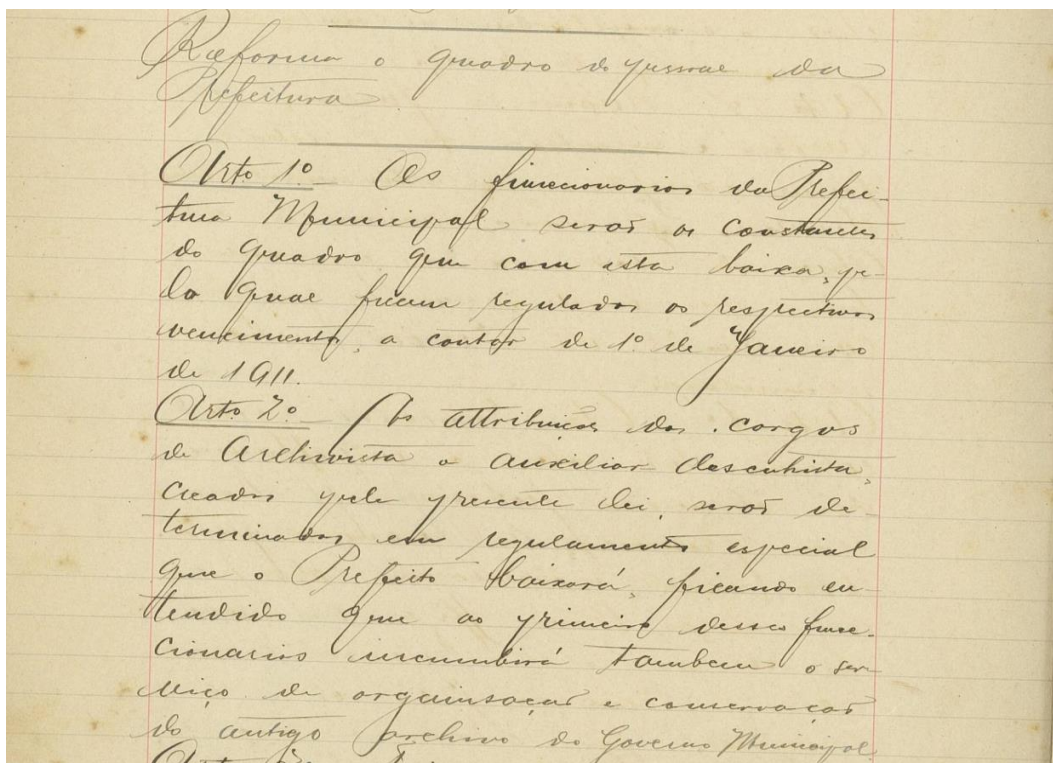 Reforma o quadro do pessoal da
Prefeitura
Art.º 1º Os funccionarios da Prefei-
tura Municipal serão os constantes
do quadro que com esta baixa, pe-
la qual ficam regulados os respectivos
vencimentos, a contar de 1º de Janeiro
de 1911.
Art.º 2º As attribuições dos cargos
de Archivista e auxiliar desenhista,
creados pela presente lei, serão de-
terminados em regulamento especial
que o Prefeito baixará, ficando en-
tendido que ao primeiro desses func-
cionarios incumbirá tambem o ser-
viço de organisação e conservação
do antigo archivo do Governo Municipal